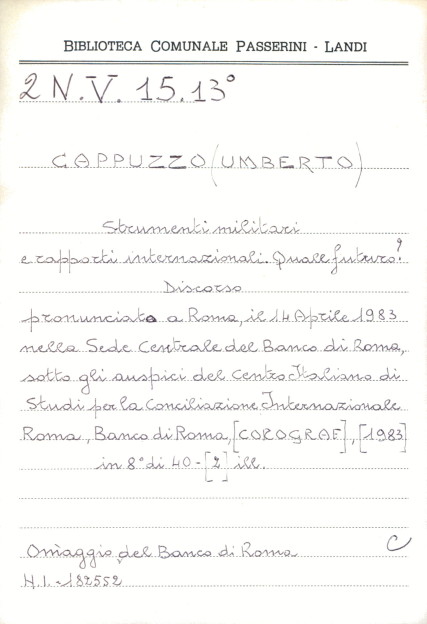 BIBLIOTECA COMUNALE PASSERINI - LANDI
2 N.V. 15.13°
CAPPUZZO (UMBERTO)
Strumenti militari
e rapporti internazionali. Quale futuro?
Discorso
pronunciato a Roma, il 14 Aprile 1983
nella Sede Centrale del Banco di Roma,
sotto gli auspici del Centro Italiano di
Studi per la Conciliazione Internazionale
Roma, Banco di Roma, [COROGRAF], [1983]
in 8° di 40-[2] ill.
Omaggio del Banco di Roma
C
N.I. - 182552